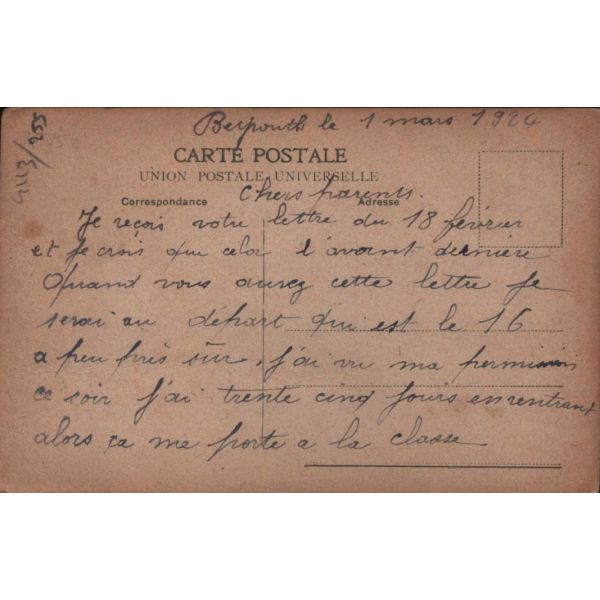 4113/255
Beyrouth le 1 mars 1924
CARTE POSTALE
UNION POSTALE UNIVERSELLE
Chers parents.
Correspondance Adresse
Je reçois votre lettre du 18 février
et je crois que cela l'avant dernière
Quand vous aurez cette lettre je
serai au départ qui est le 16
a peu près sûr, j'ai vu ma permission
ce soir j'ai trente cinq jours en rentrant
alors ça me porte a la classe